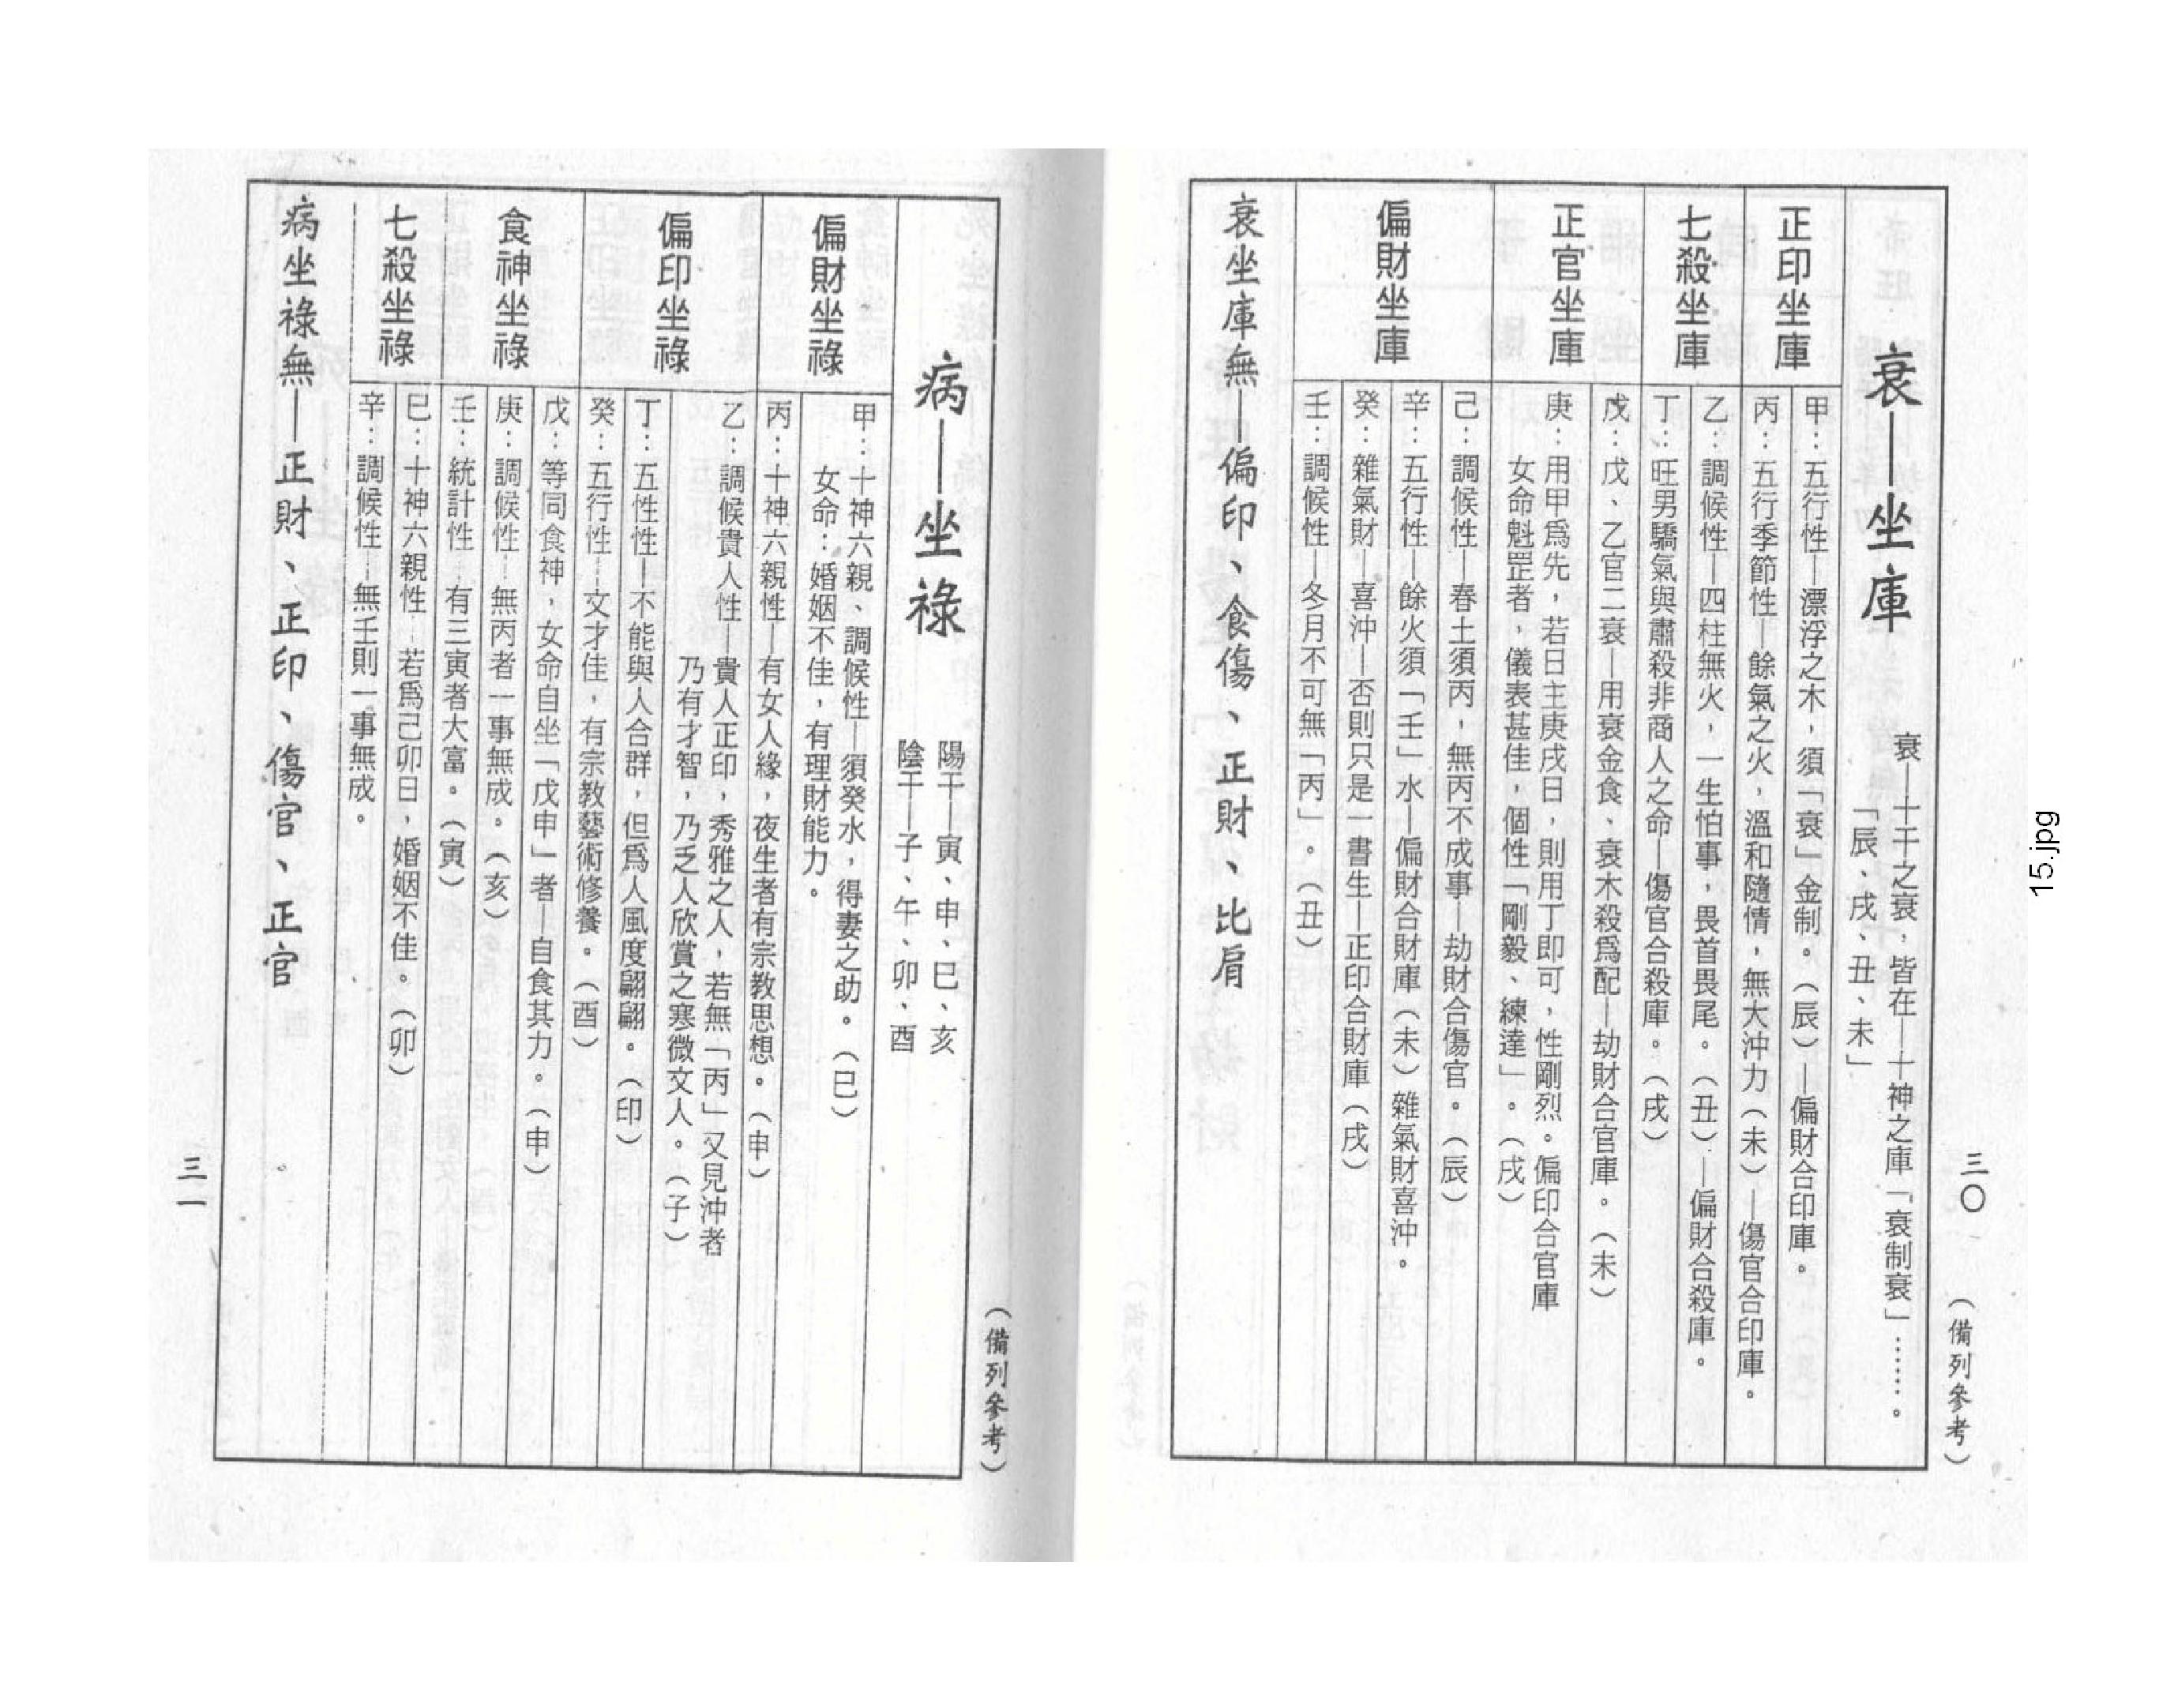 三〇
（備列參考）
衰—坐庫
衰—十干之衰，皆在—十神之庫「衰制衰」……。
「辰、戌、丑、未」
正印坐庫
甲：五行性—漂浮之木，須「衰」金制。（辰）—偏財合印庫。
丙：五行季節性—餘氣之火，溫和隨情，無大沖力（未）—傷官合印庫。
七殺坐庫
乙：調候性—四柱無火，一生怕事，畏首畏尾。（丑）—偏財合殺庫。
丁：旺男驕氣與肅殺非商人之命—傷官合殺庫。（戌）
正官坐庫
戊：戊、乙官二衰—用衰金食、衰木殺爲配—劫財合官庫。（未）
庚：用甲爲先，若日主庚戌日，則用丁即可，性剛烈。偏印合官庫
女命魁罡者，儀表甚佳，個性「剛毅、練達」。（戌）
偏財坐庫
己：調候性—春土須丙，無丙不成事—劫財合傷官。（辰）
辛：五行性—餘火須「壬」水—偏財合財庫（未）雜氣財喜沖。
癸：雜氣財—喜沖—否則只是一書生—正印合財庫（戌）
壬：調候性—冬月不可無「丙」。（丑）
衰坐庫無—偏印、食傷、正財、比肩
（備列參考）
病—坐祿
陽干—寅、申、巳、亥
陰干—子、午、卯、酉
偏財坐祿
甲：十神六親、調候性—須癸水，得妻之助。（巳）
女命：婚姻不佳，有理財能力。
丙：十神六親性—有女人緣，夜生者有宗教思想。（申）
偏印坐祿
乙：調候貴人性—貴人正印，秀雅之人，若無「丙」又見沖者
乃有才智，乃乏人欣賞之寒微文人。（子）
丁：五性性—不能與人合群，但爲人風度翩翩。（印）
癸：五行性—文才佳，有宗教藝術修養。（酉）
食神坐祿
戊：等同食神，女命自坐「戊申」者—自食其力。（申）
庚：調候性—無丙者一事無成。（亥）
壬：統計性—有三寅者大富。（寅）
七殺坐祿
巳：十神六親性—若爲己卯日，婚姻不佳。（卯）
辛：調候性—無壬則一事無成。
病坐祿無—正財、正印、傷官、正官
三一
15.jpg